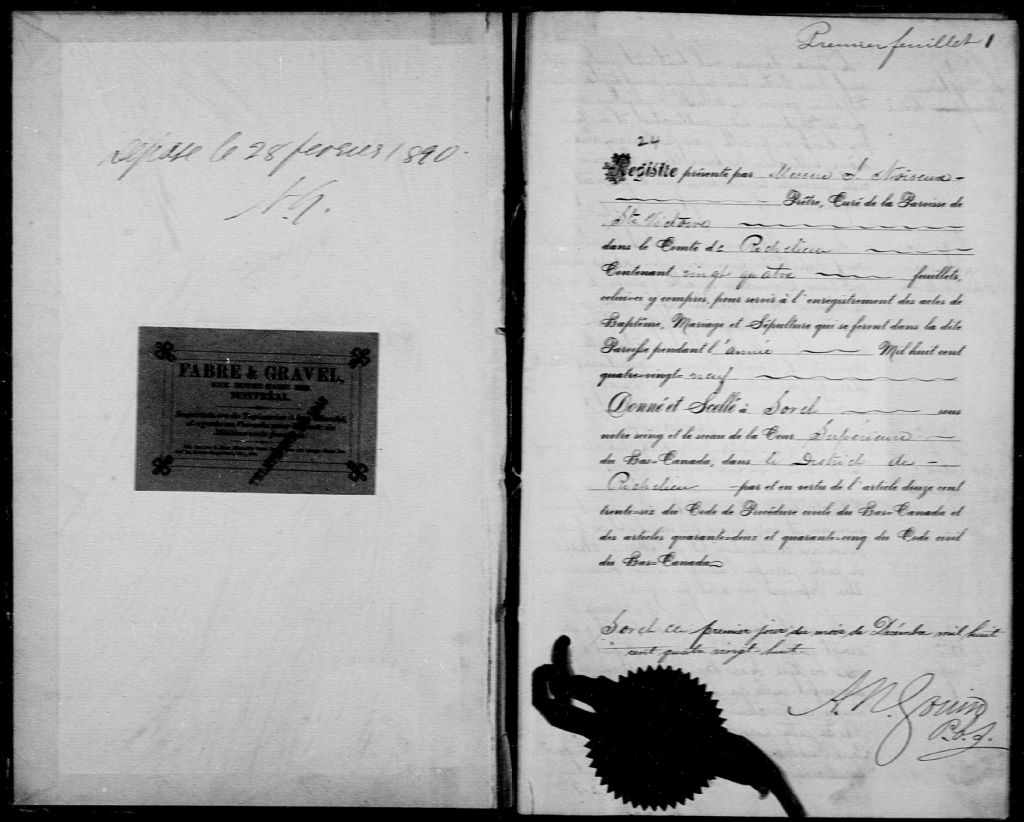 Déposé le 28 fevrier 1890.
FABRE & GRAVEL,
RUE NOTRE-DAME
MONTRÉAL.
Premier feuillet 1
24
Registre présenté par Messire J. Noiseux
Prêtre, Curé de la Paroisse de
Ste Victoire
dans le Comté de Richelieu
Contenant vingt quatre feuillets,
celui-ci y compris, pour servir à l'enregistrement des actes de
Baptême, Mariage et Sépulture qui se feront dans la dite
Paroisse pendant l'année Mil huit cent
quatre-vingt-neuf
Donné et Scellé à Sorel sous
notre seing et le sceau de la Cour Supérieure
du Bas-Canada, dans le District de
Richelieu par et en vertu de l'article douze cent
trente-six du Code de Procédure civile du Bas-Canada et
des articles quarante-deux et quarante-cinq du Code civil
du Bas-Canada
Sorel ce premier jour du mois de Décembre mil huit
cent quatre vingt-huit
A. N. Gouin
P.C.S.